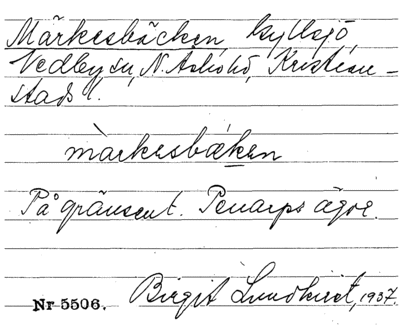 Märkesbäcken, Gyllsjö,
Vedby sn, N. Åsbo hd, Kristian-
stads l.
màrkesbæken
På gränsen t. Penarps ägor.
Birgit Lundkvist, 1937.
Nr 5506.